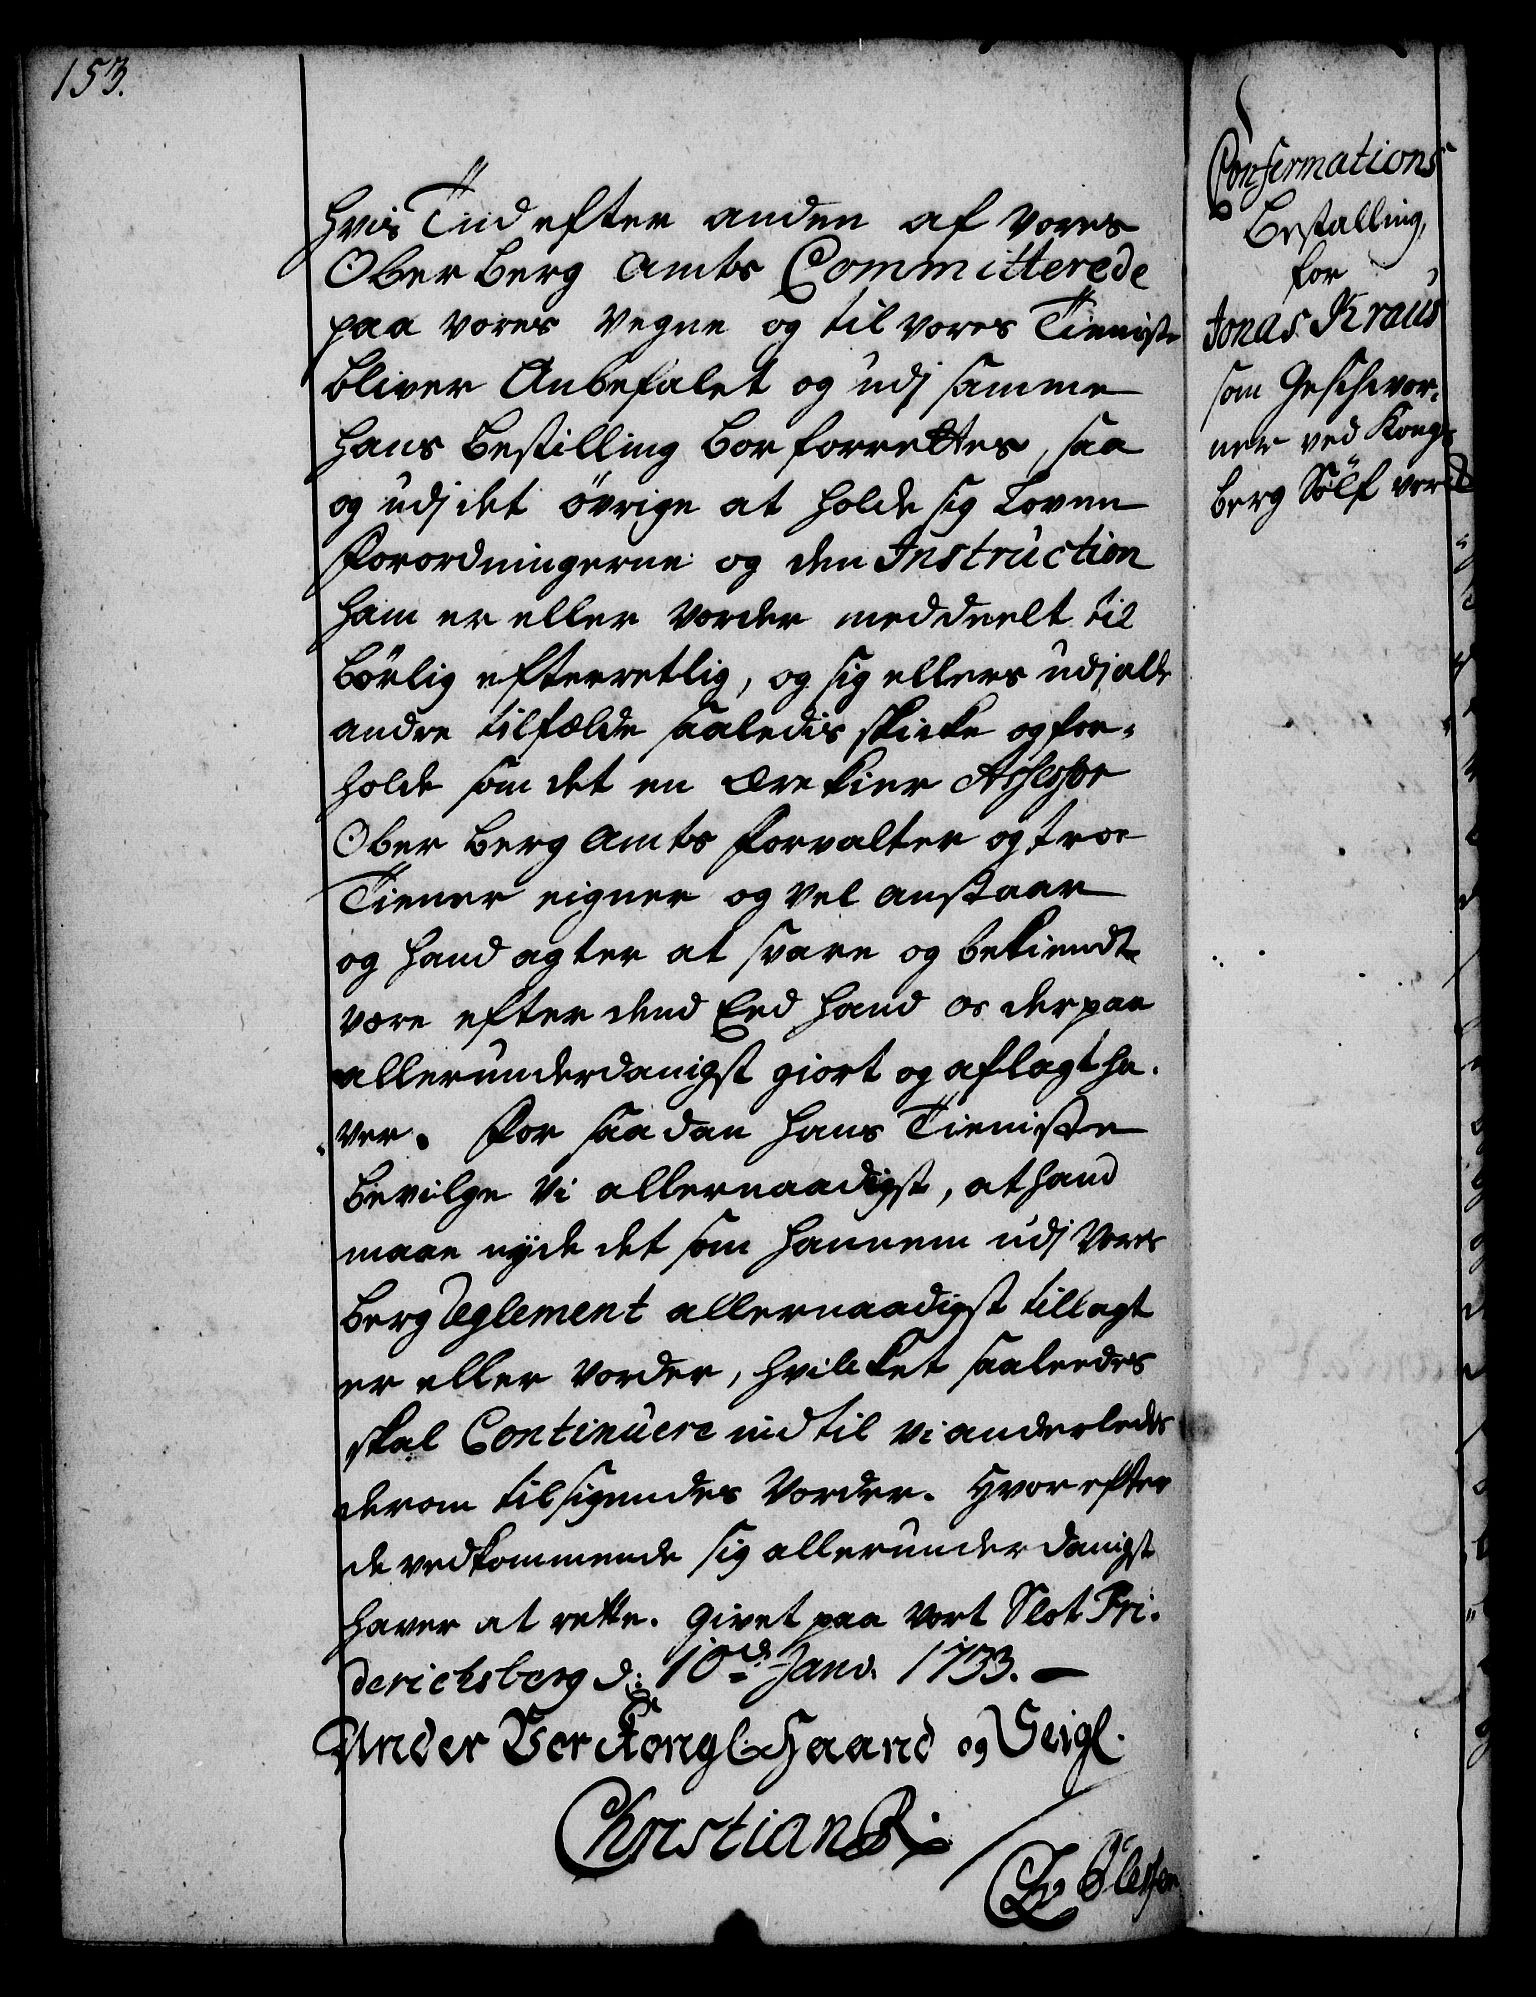 153.
hvis Tiid efter anden af vores
Ober Berg Amts Committerede
paa vores Vegne og til vores Tieniste
bliver Anbefalet og udj samme
hans Bestilling bor forrettes, saa
og udj det övrige at holde sig Loven
Forordningerne og den Instruction
ham er eller vorder meddeelt til
börlig efterretlig, og sig ellers udj alle
andre tilfælde saaledis skicke og for-
holde som det en ære kier Assessor
Ober Berg Amts Forvalter og troe
Tiener eigner og vel anstaar
og hand agter at svare og bekiendt
være efter dend Eed hand os derpaa
allerunderdanigst giort og aflagt ha-
ver. For saadan hans Tieniste
bevilge Vi allernaadigst, at hand
maae nyde det som hannem udj Vores
Berg Reglement allernaadigst tillagt
er eller vorder, hvilcket saaledes
skal Continuere indtil vi anderledes
derom tilsigendes vorder. Hvorefter
de vedkommende sig allerunderdanigst
haver at rette. Givet paa vort Slot Fri-
derichsberg d: 10de Janv. 1733.
Under Vor Kongl. Haand og Seigl.
Christian R.
Confirmations
Bestalling,
for
Jonas Kraus
som Geschwor-
ner ved Kongs
berg Sölf verck